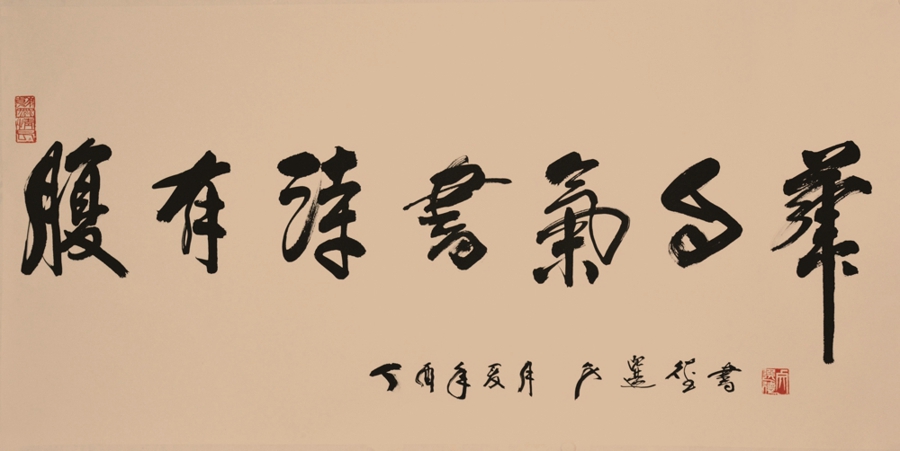 腹有詩書氣自華
丁酉年夏月 書